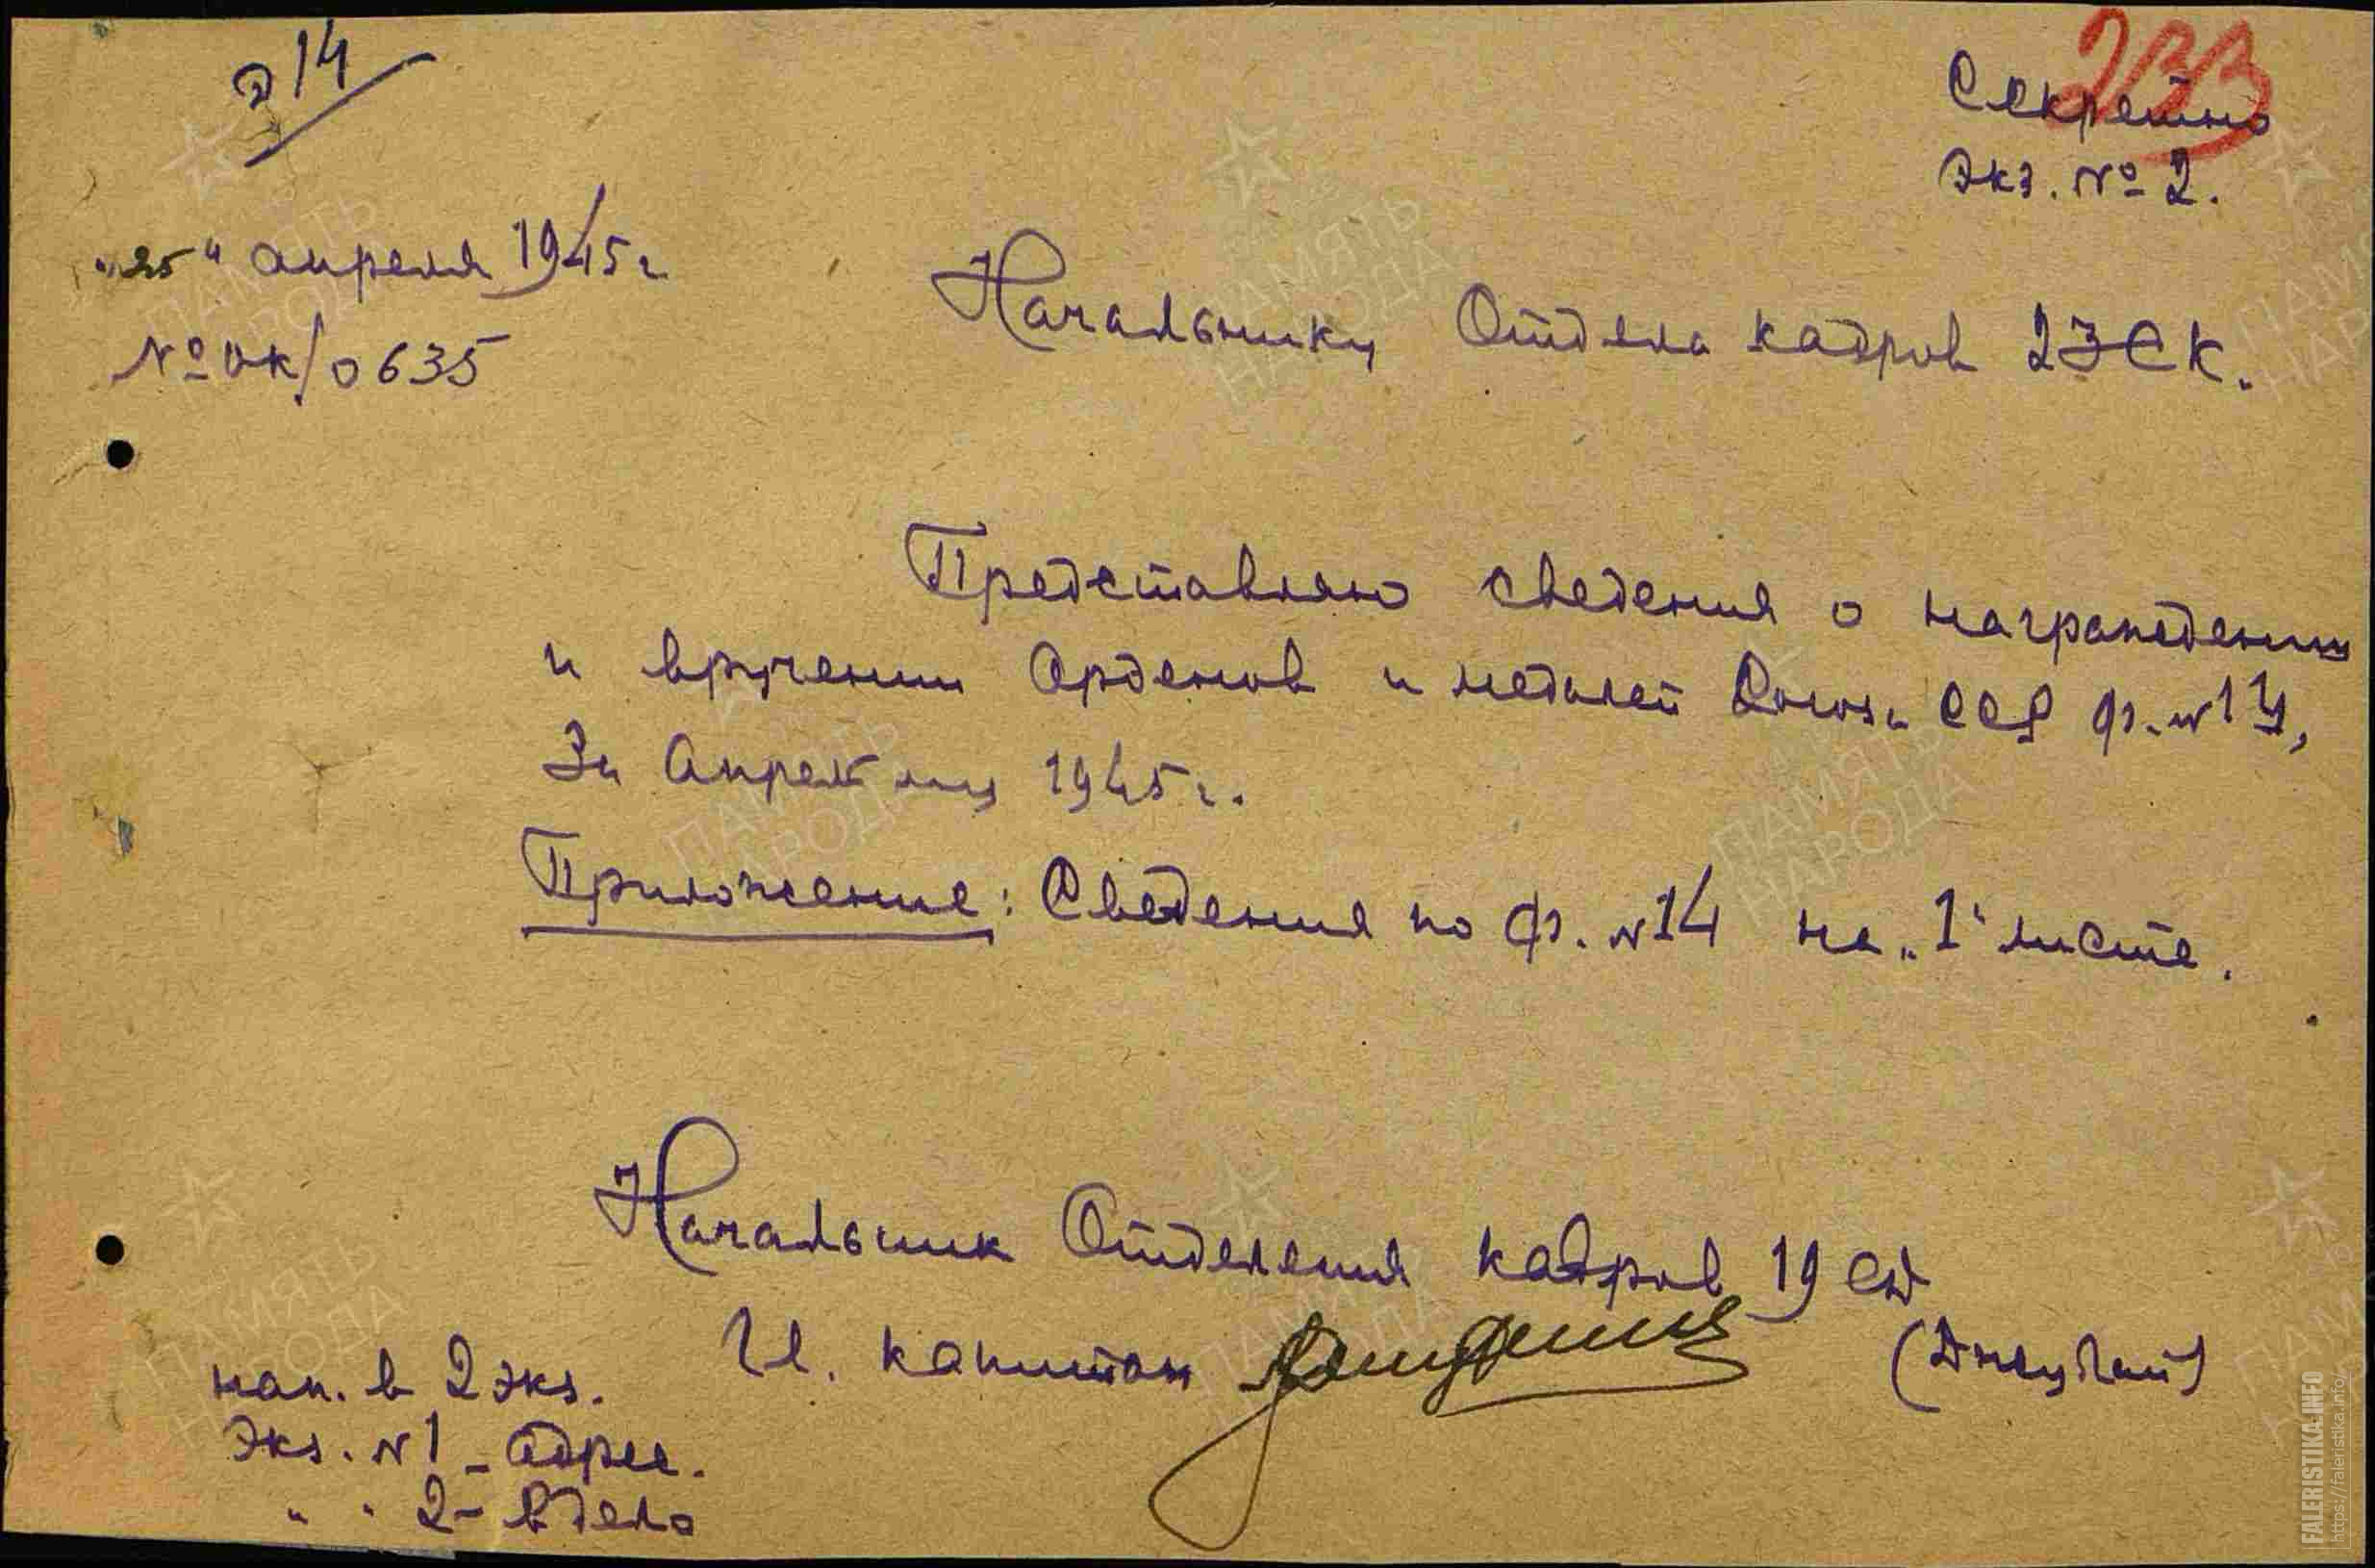 д 14
233
Секретно
Экз. № 2.
"25" апреля 1945г
№ ок/0635
Начальнику Отдела кадров 23СК.
Представляю сведения о награждении
и вручении Орденов и медалей Союза ССР ф. №14,
За Апрель м-ц 1945г.
Приложение: Сведения по ф. №14 на "1" листе.
Начальник Отделения кадров 19 сд
Гв. капитан
нап. в 2 экз.
Экз. №1 - адрес.
" " 2 - в дело
ПАМЯТЬ
НАРОДА
FALERISTIKA.INFO
https://faleristika.info/